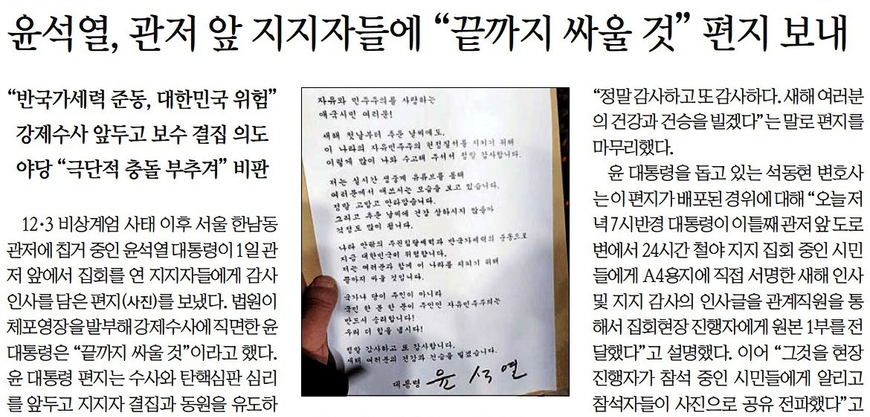 윤석열, 관저 앞 지지자들에 “끝까지 싸울 것” 편지 보내
“반국가세력 준동, 대한민국 위험”
강제수사 앞두고 보수 결집 의도
야당 “극단적 충돌 부추겨” 비판
12·3 비상계엄 사태 이후 서울 한남동
관저에 칩거 중인 윤석열 대통령이 1일 관
저 앞에서 집회를 연 지지자들에게 감사
인사를 담은 편지(사진)를 보냈다. 법원이
체포영장을 발부해 강제수사에 직면한 윤
대통령은 “끝까지 싸울 것”이라고 했다.
윤 대통령 편지는 수사와 탄핵심판 심리
를 앞두고 지지자 결집과 동원을 유도하
자유와 민주주의를 사랑하는
애국시민 여러분!
새해 첫날부터 추운 날씨에도,
이 나라의 자유민주주의 헌정질서를 지키기 위해
이렇게 많이 나와 수고해 주셔서 정말 감사합니다.
저는 실시간 생중계 유튜브를 통해
여러분께서 애쓰시는 모습을 보고 있습니다.
정말 고맙고 안타깝습니다.
그리고 추운 날씨에 건강 상하시지 않을까
걱정도 많이 됩니다.
나라 안팎의 주권침탈세력과 반국가세력의 준동으로
지금 대한민국이 위험합니다.
저는 여러분과 함께 이 나라를 지키기 위해
끝까지 싸울 것입니다.
국가나 당이 주인이 아니라
국민 한 분 한 분이 주인인 자유민주주의는
반드시 승리합니다!
우리 더 힘을 냅시다!
정말 감사하고 또 감사합니다.
새해 여러분의 건강과 건승을 빌겠습니다.
대통령 윤석열
“정말 감사하고 또 감사하다. 새해 여러분
의 건강과 건승을 빌겠다”는 말로 편지를
마무리했다.
윤 대통령을 돕고 있는 석동현 변호사
는 이 편지가 배포된 경위에 대해 “오늘 저
녁 7시반경 대통령이 이틀째 관저 앞 도로
변에서 24시간 철야 지지 집회 중인 시민
들에게 A4용지에 직접 서명한 새해 인사
및 지지 감사의 인사글을 관계직원을 통
해서 집회현장 진행자에게 원본 1부를 전
달했다”고 설명했다. 이어 “그것을 현장
진행자가 참석 중인 시민들에게 알리고
참석자들이 사진으로 공유 전파했다”고